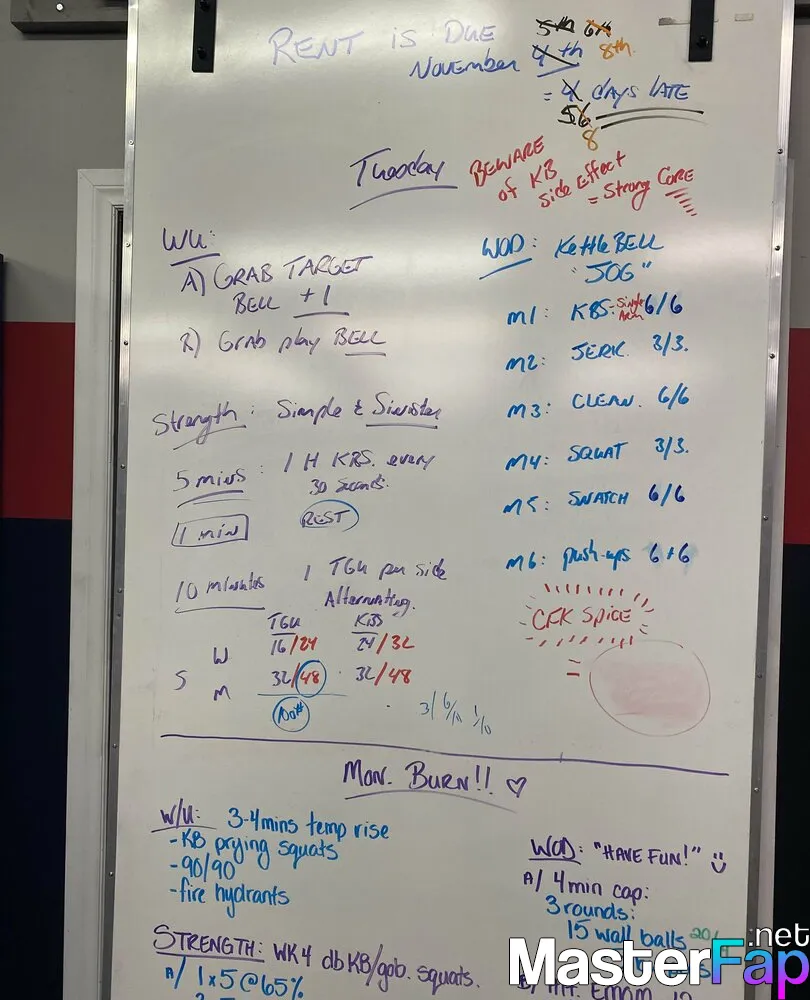 RENT is DUE
5th 6th
NOVEMBER 4th 8th.
= 4 days LATE
5 6
8
Tuesday
BEWARE
of KB
side Effect
= Strong CORE
WU:
A) GRAB TARGET
BELL +1
B) Grab play BELL
Strength: Simple & Sinister
5 mins : 1 H KBS. every
30 Seconds.
1 min REST
10 minutes 1 TGU per side
Alternating.
TGU KBS
W 16/24 24/32
S
M 32/48 32/48
100#
3/ 6/10 1/10
WOD: KettleBELL
"JOG"
M1: KBS: Single Arm 6/6
M2: JERK. 3/3.
M3: CLEAN. 6/6
M4: SQUAT 3/3.
M5: SNATCH 6/6
M6: push-ups 6+6
CFK SPICE
=
Mon. BURN!! ♡
W/U: 3-4mins temp rise
- KB prying squats
- 90/90
- fire hydrants
STRENGTH: WK4 db KB/gob. squats.
A/ 1x5@65%
WOD: "HAVE FUN!"
A/ 4min cap:
3 rounds:
15 wall balls 20/
MasterFap.net